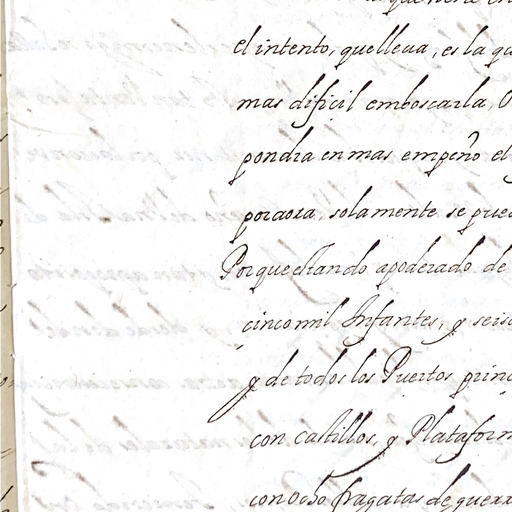 el intento, quelleua, es la qu
mas dificil emboscarla, O
pondra en mas empeño el
poraora, solamente se pued
Porque estando apoderado de
cinco mil Infantes, y seisc
y de todos los Puertos princ
con castillos, y Plataform
con ocho fragatas de guerr